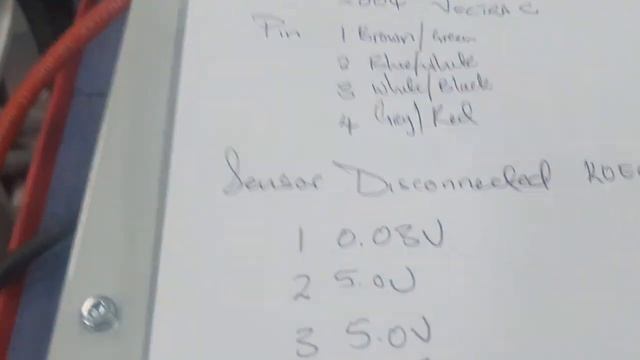 2004 Vectra C
Pin 1 Brown/Green
2 Blue/White
3 White/Black
4 Grey/Red
Sensor Disconnected KOEO
1 0.08V
2 5.0V
3 5.0V